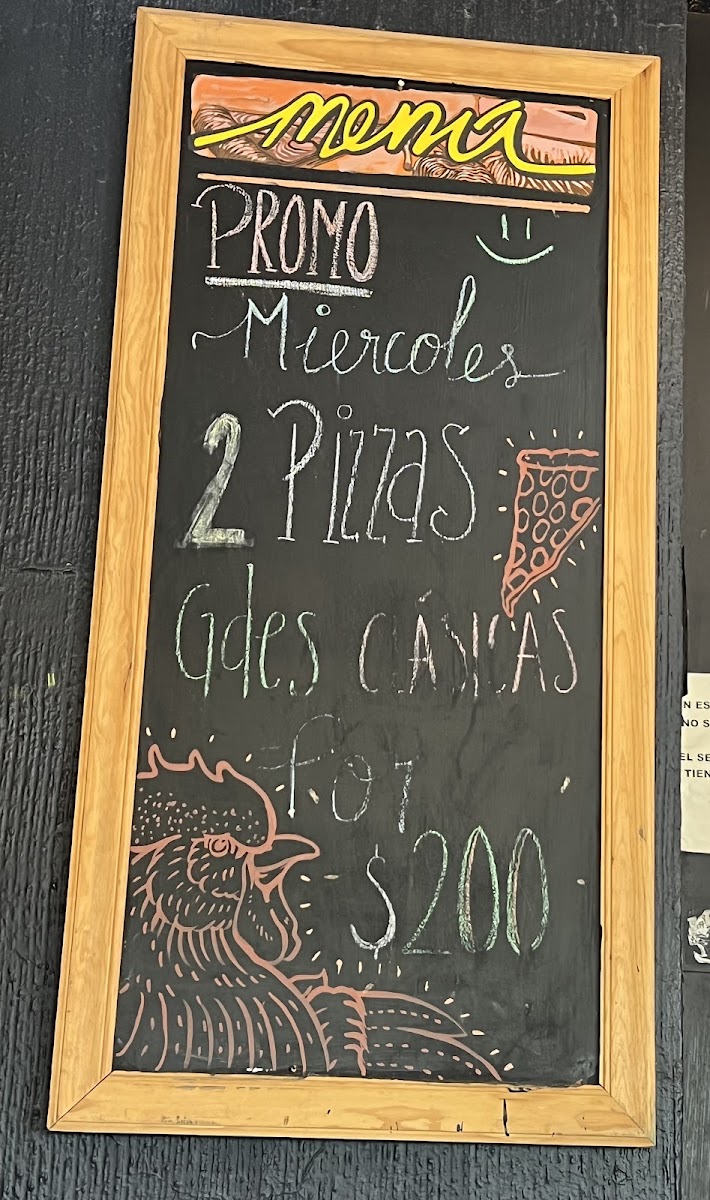 menu
PROMO
Miercoles
2 Pizzas
Gdes CLÁSICAS
Por
$200
N ES
NO S
EL SE
TIEN